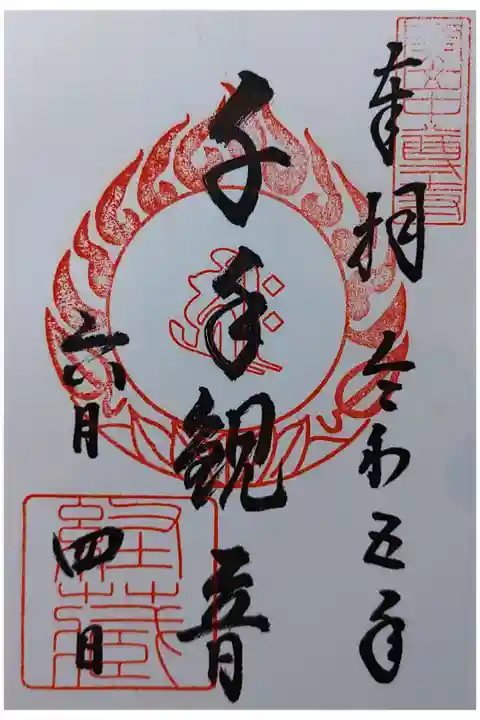 奉拝 令和五年
千手観音
六月四日
経蔵